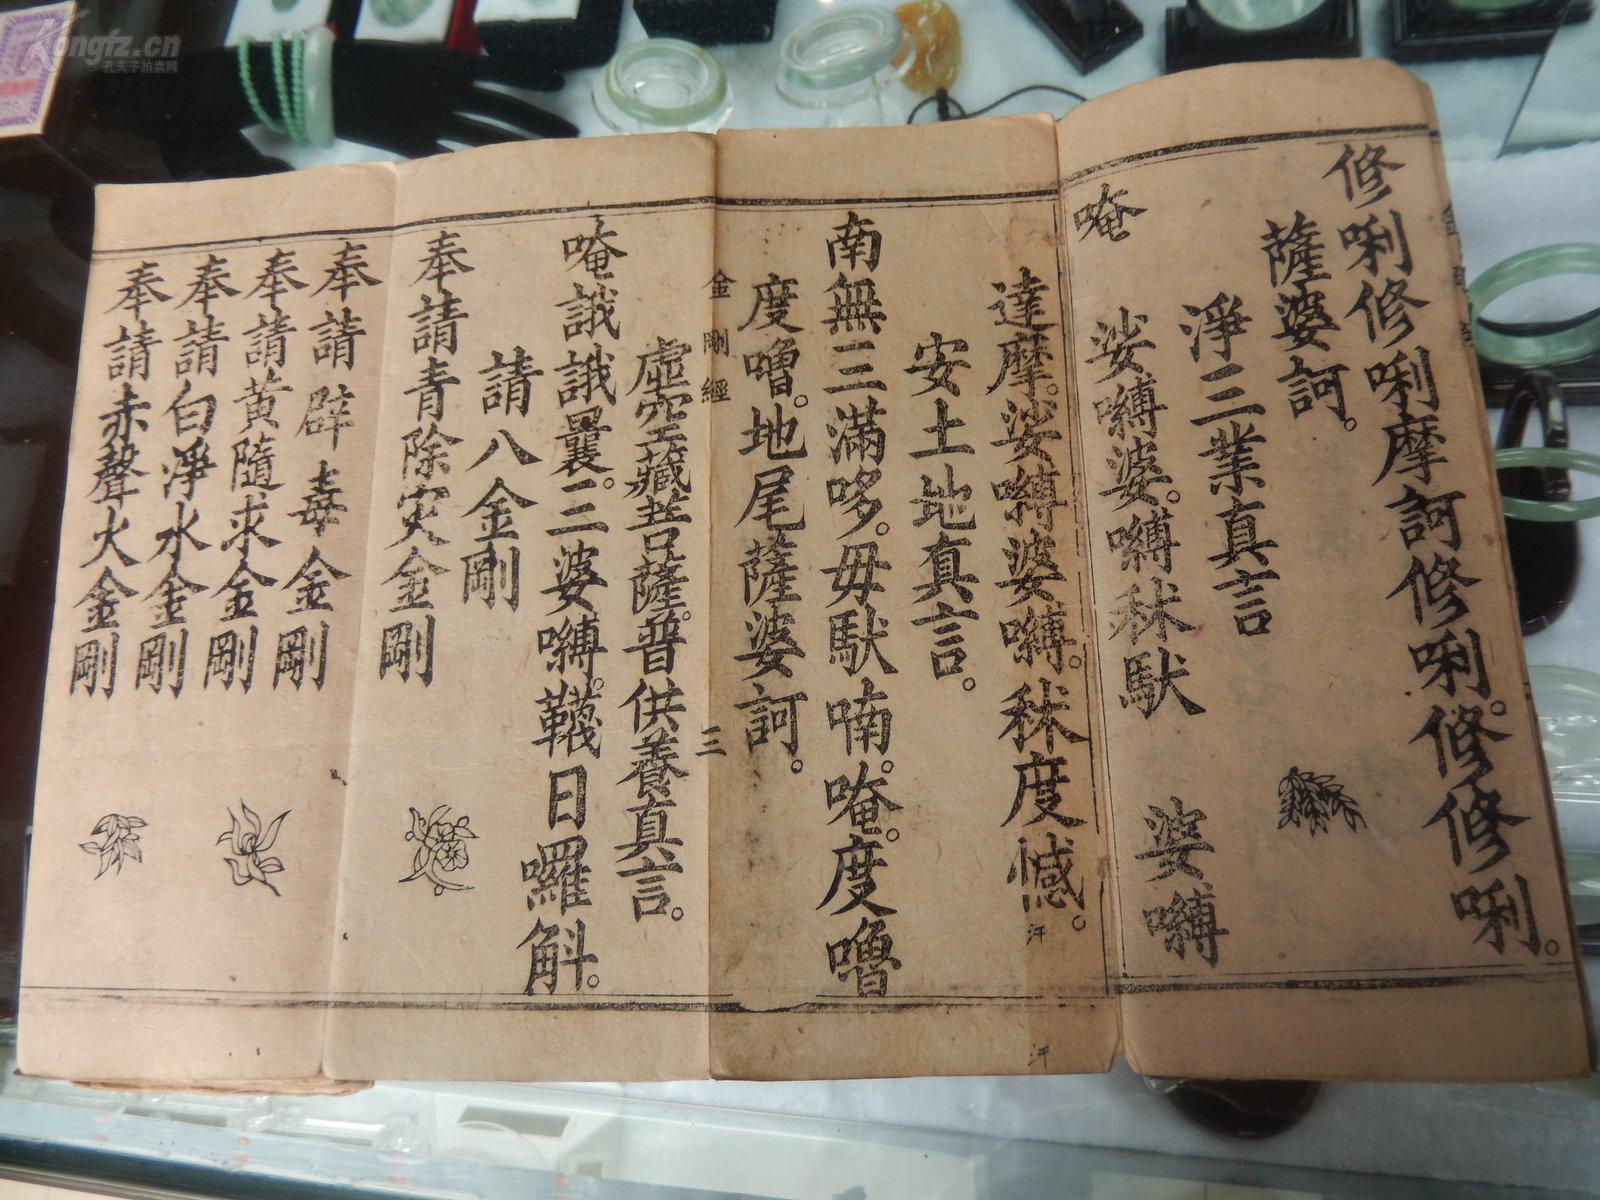 修唎修唎摩訶修唎。修修唎。
薩婆訶。
淨三業真言
唵　娑嚩婆。嚩秫䭾　娑嚩
達摩。娑嚩婆嚩。秫度憾。
安土地真言。
南無三滿哆。毋䭾喃。唵。度嚕
度嚕。地尾薩婆訶。
金剛經　三
虛空藏菩薩。普供養真言。
唵誐誐曩。三婆嚩。韈日囉斛。
請八金剛
奉請青除災金剛
奉請辟毒金剛
奉請黃隨求金剛
奉請白淨水金剛
奉請赤聲火金剛
Kongfz.cn
孔夫子拍卖网